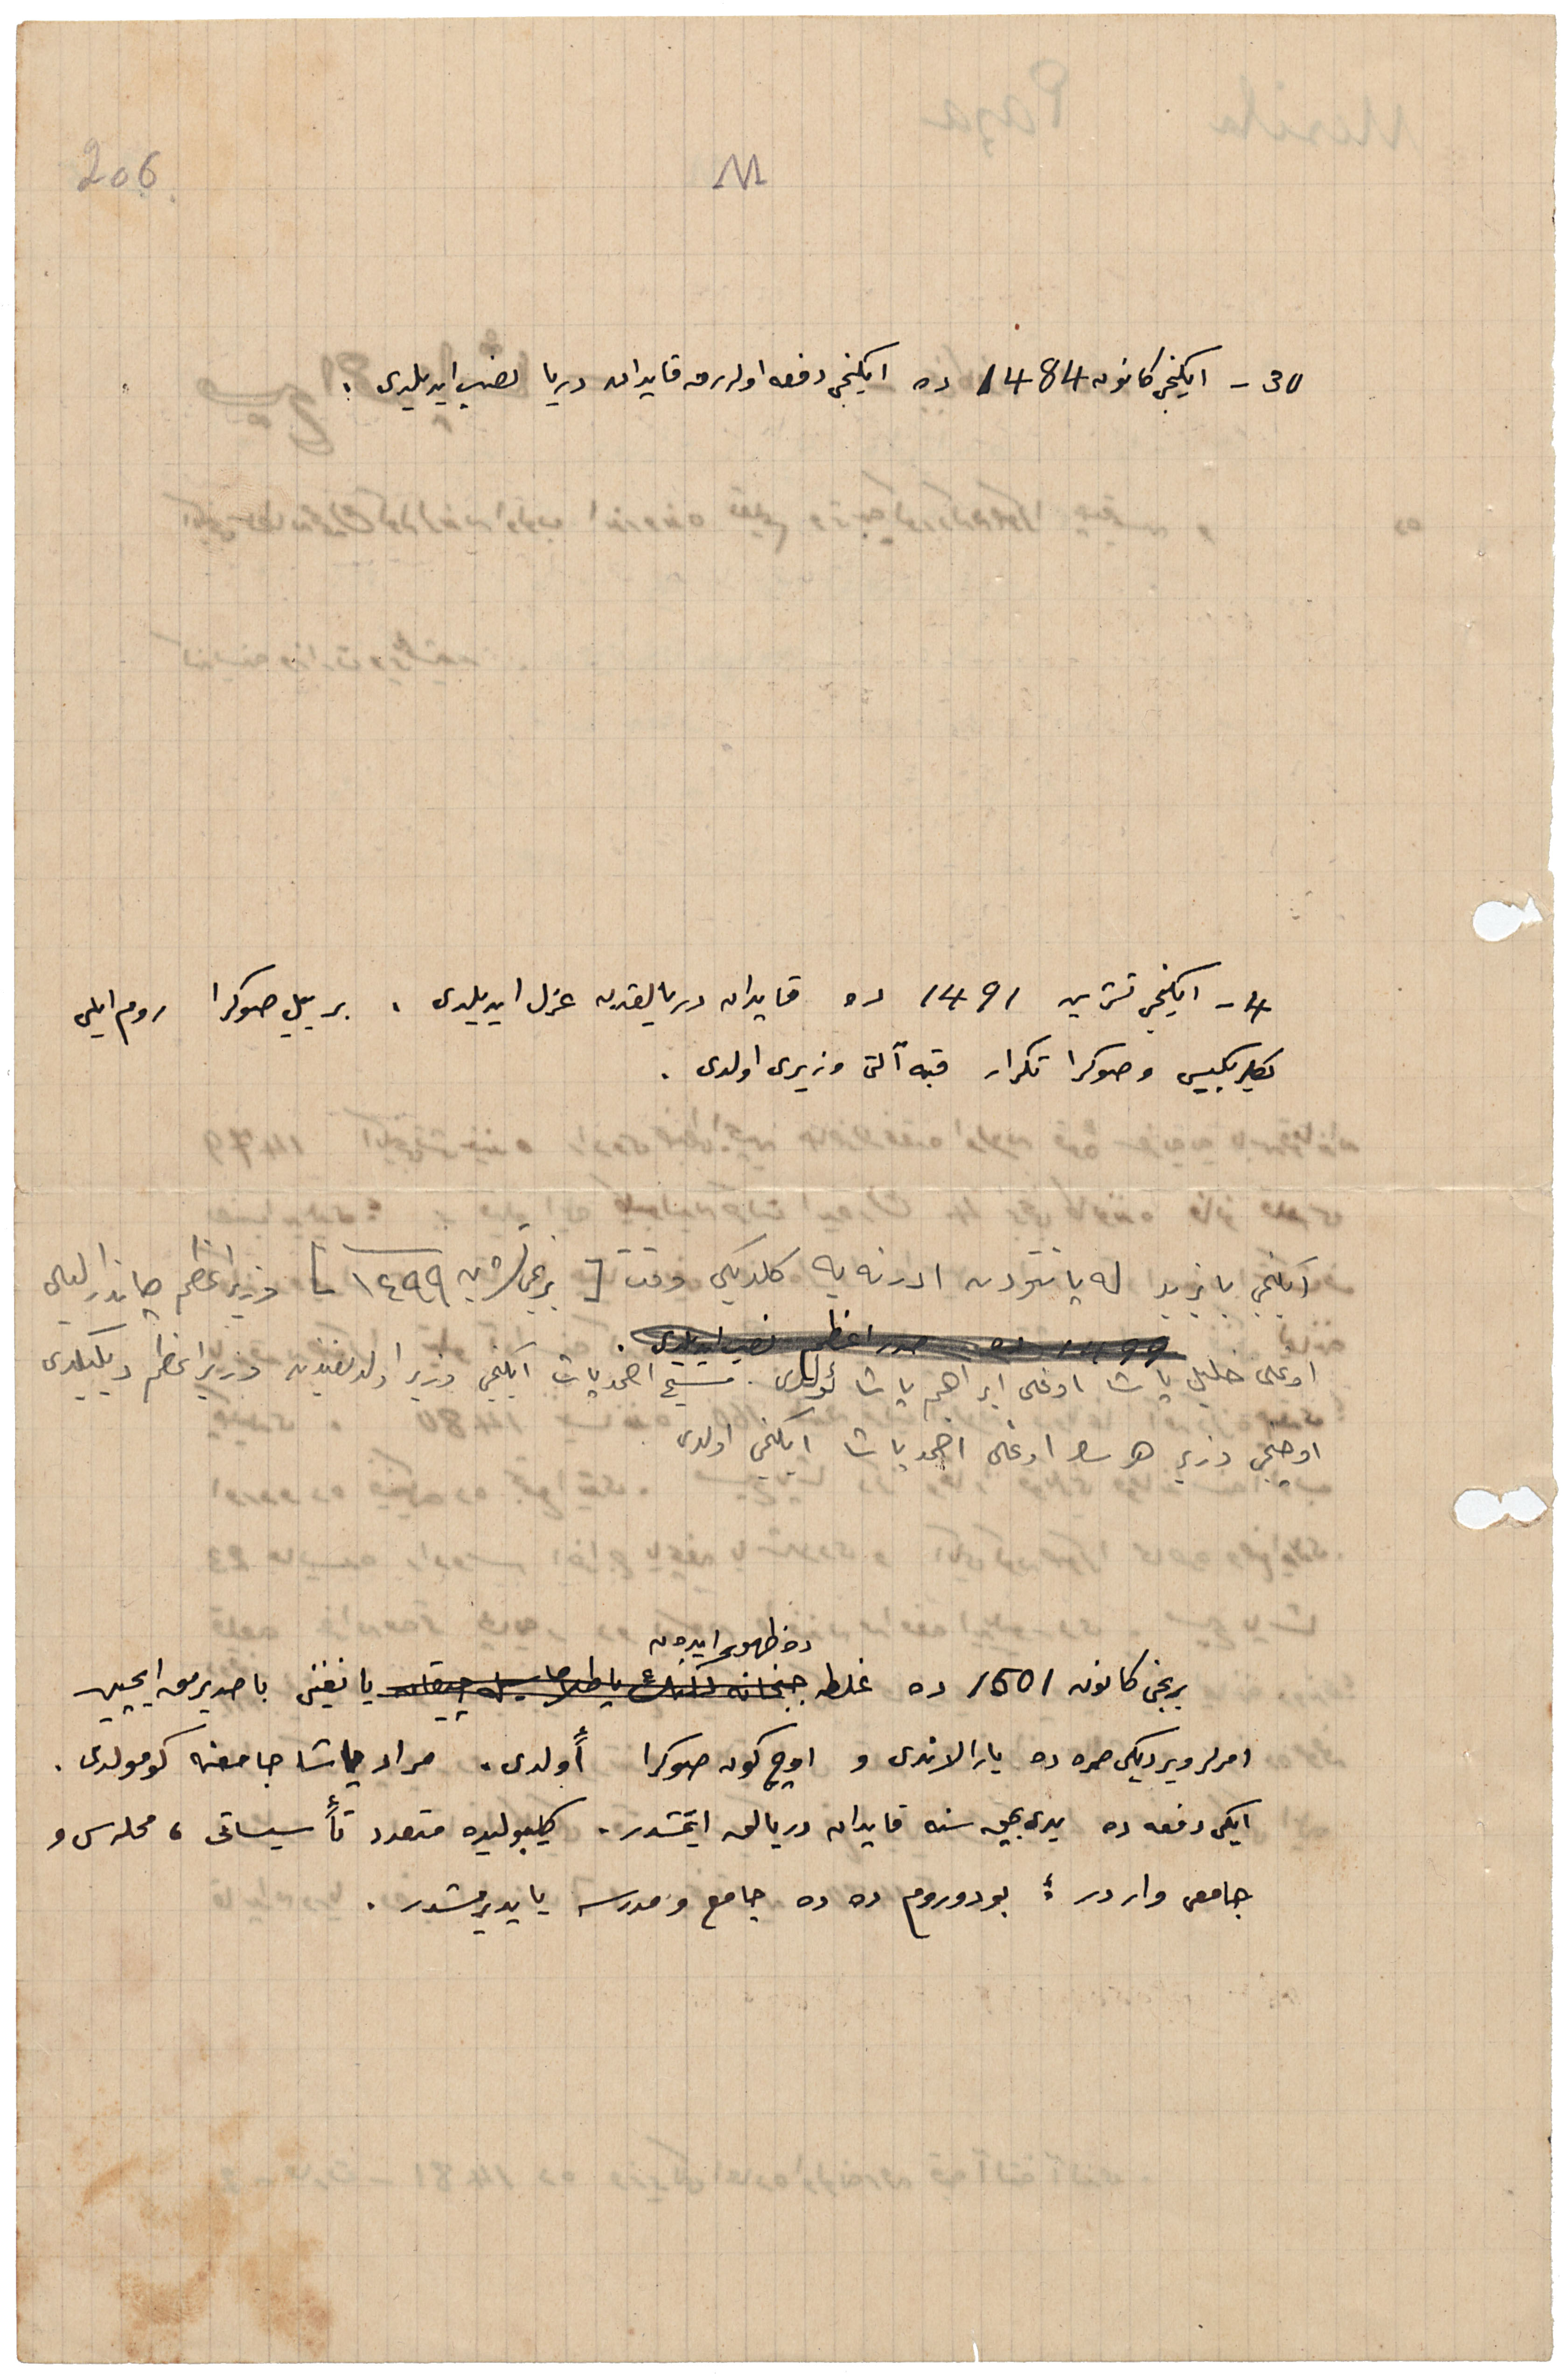 206
M
30 - ایکنجی کانون 1484 ده ایکنجی دفعه اوله‌رق قاپدان دریا نصب ایدیلدی .
4 - ایکنجی تشرین 1491 ده قاپدان دریالقدن عزل ایدیلدی . بر ییل صوکرا روم ایلی
بکلربکیسی و صوکرا تکرار قبه آلتی وزیری اولدی .
ایکنجی بایزید له پانتودن ادرنه یه کلدیکی وقت [ برنجی تشرین ١٤٩٩ ] وزیر اعظم چاندارلیلی
1499 ده صدر اعظم نصب ایدیلدی .
اوغلی خلیل پاشا اوغلی ابراهیم پاشا ئولدی . مسیح احمد پاشا ایکنجی وزیر اولدیغندن وزیر اعظم دیکیلدی
اوچنجی وزیر هرسك اوغلی احمد پاشا ایکنجی اولدی
ده ظهور ایدن
برنجی کانون 1501 ده غلطه جبخانه لکنك پاطلاماسیله چیقان یانغینی باصدیرمق ایچین
امرلر ویردیکی صره ده یارالاندی و اوچ کون صوکرا أولدی . مراد پاشا جامعنه کومولدی .
ایکی دفعه ده یدی بچق سنه قاپدان دریالق ایتمشدر . کلیبولیده متعدد تأسیساتی ، محله‌سی و
جامعی واردر ؛ بودوروم ده ده جامع و مدرسه یاپدیرمشدر .